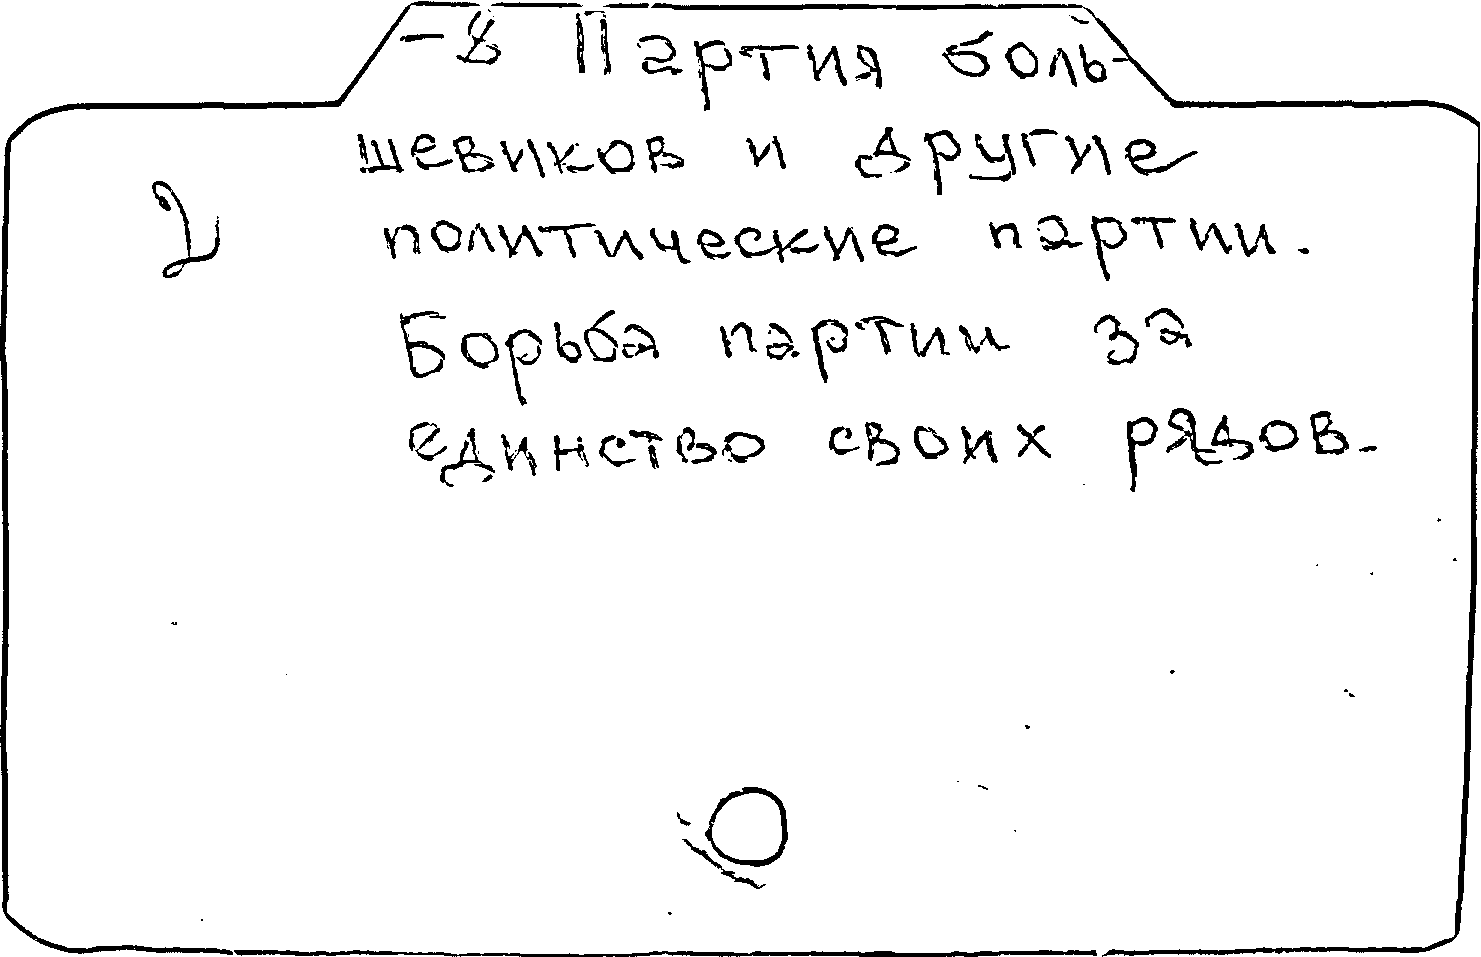 -8 Партия боль-
шевиков и другие
2 политические партии.
Борьба партии за
единство своих рядов.